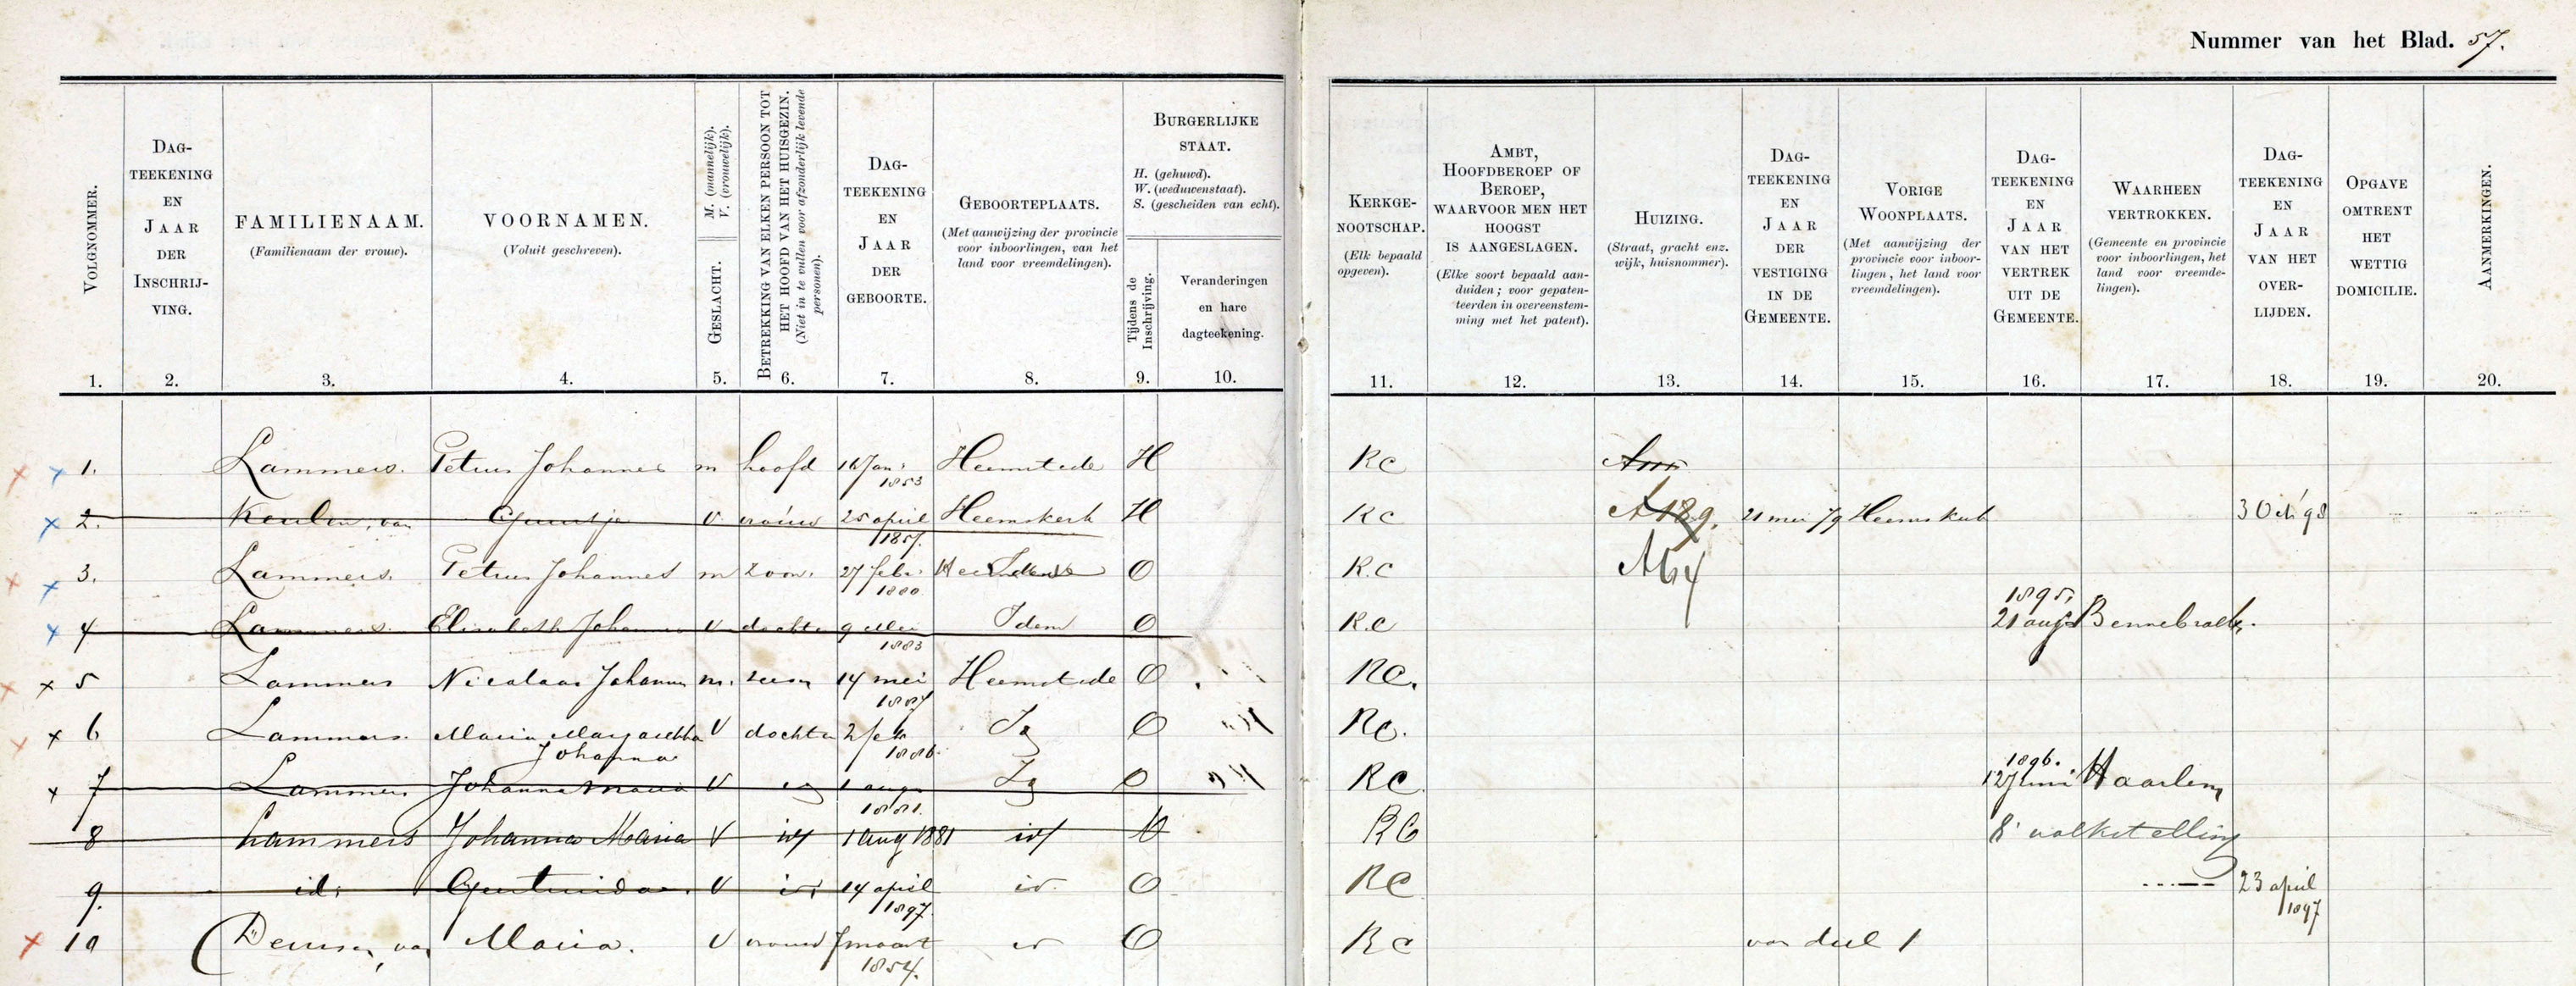 Nummer van het Blad. 57.
VOLGNOMMER.
DAG-
TEEKENING
EN
JAAR
DER
INSCHRIJ-
VING.
FAMILIENAAM.
(Familienaam der vrouw).
VOORNAMEN.
(Voluit geschreven).
M. (mannelijk).
V. (vrouwelijk).
GESLACHT.
BETREKKING VAN ELKEN PERSOON TOT
HET HOOFD VAN HET HUISGEZIN.
(Niet in te vullen voor afzonderlijk levende
personen).
DAG-
TEEKENING
EN
JAAR
DER
GEBOORTE.
GEBOORTEPLAATS.
(Met aanwijzing der provincie
voor inboorlingen, van het
land voor vreemdelingen).
BURGERLIJKE
STAAT.
H. (gehuwd).
W. (weduwenstaat).
S. (gescheiden van echt).
Tijdens de
Inschrijving.
Veranderingen
en hare
dagteekening.
KERKGE-
NOOTSCHAP.
(Elk bepaald
opgeven).
AMBT,
HOOFDBEROEP OF
BEROEP,
WAARVOOR MEN HET
HOOGST
IS AANGESLAGEN.
(Elke soort bepaald aan-
duiden; voor gepaten-
teerden in overeenstem-
ming met het patent).
HUIZING.
(Straat, gracht enz.
wijk, huisnommer).
DAG-
TEEKENING
EN
JAAR
DER
VESTIGING
IN DE
GEMEENTE.
VORIGE
WOONPLAATS.
(Met aanwijzing der
provincie voor inboor-
lingen, het land voor
vreemdelingen).
DAG-
TEEKENING
EN
JAAR
VAN HET
VERTREK
UIT DE
GEMEENTE.
WAARHEEN
VERTROKKEN.
(Gemeente en provincie
voor inboorlingen, het
land voor vreemde-
lingen).
DAG-
TEEKENING
EN
JAAR
VAN HET
OVER-
LIJDEN.
OPGAVE
OMTRENT
HET
WETTIG
DOMICILIE.
AANMERKINGEN.
1. 2. 3. 4. 5. 6. 7. 8. 9. 10. 11. 12. 13. 14. 15. 16. 17. 18. 19. 20.
1. Lammers. Petrus Johannes m hoofd 16 Jan. 1853 Heemstede H RC
2. Keulen, van Geertje V vrouw 25 april 1857. Heemskerk H RC A189. 21 mei 79 Heemskerk 3 Oct '98
3. Lammers. Petrus Johannes m zoon. 27 febr. 1880 O R.C A64
4 Lammers. Elisabeth Johanna V dochter 9 Mei 1883 Idem O R.C 1895. 21 aug Bennebroek.
5 Lammers Nicolaas Johannes m. zoon 14 mei 1887 Heemstede O RC.
6 Lammers. Maria Margaretha Johanna V dochter 2 feb 1886. O RC.
7 Lammers Johanna Maria V 1 aug 1881. O RC. 1896. 12 Juni Haarlem
8 Lammers Johanna Maria V id 1 aug 1881 id O RC 8e volkstelling
9. id. Geertruida. V id 14 april 1897. id. O RC 23 april 1897
10 van Maria. V vrouw 7 maart 1854. id O RC van deel 1